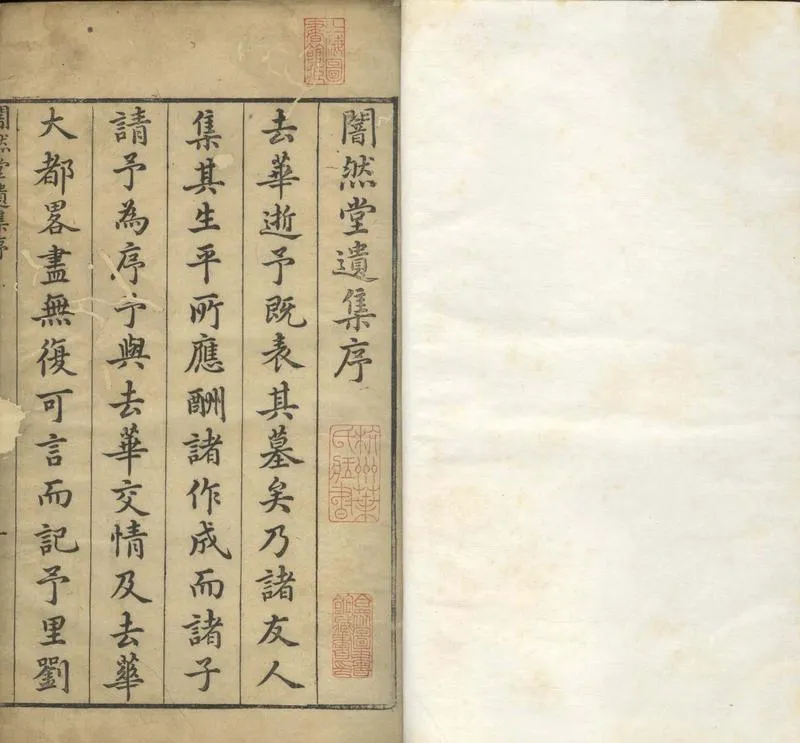 闇然堂遺集序
去華逝予既表其墓矣乃諸友人
集其生平所應酬諸作成而諸子
請予為序予與去華交情及去華
大都畧盡無復可言而記予里劉
闇然堂遺集序
上海圖書館藏
杭州葉氏藏書